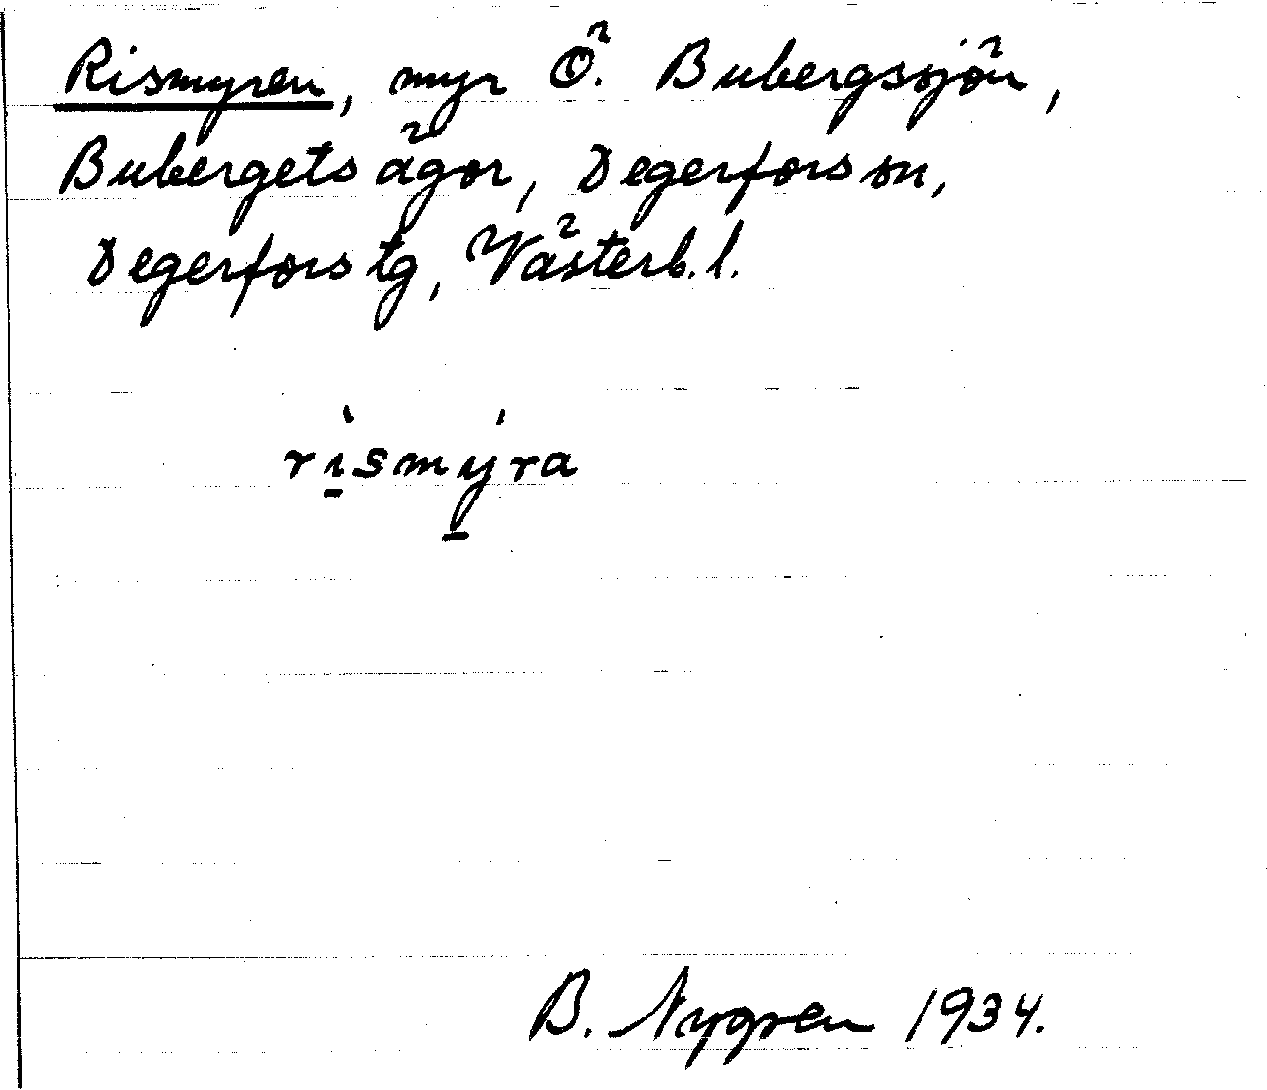 Rismyren, myr Ö. Bubergssjön,
Bubergets ägor, Degerfors sn,
Degerfors tg, Västerb. l.
ri̱smy̱ra
B. Nygren 1934.